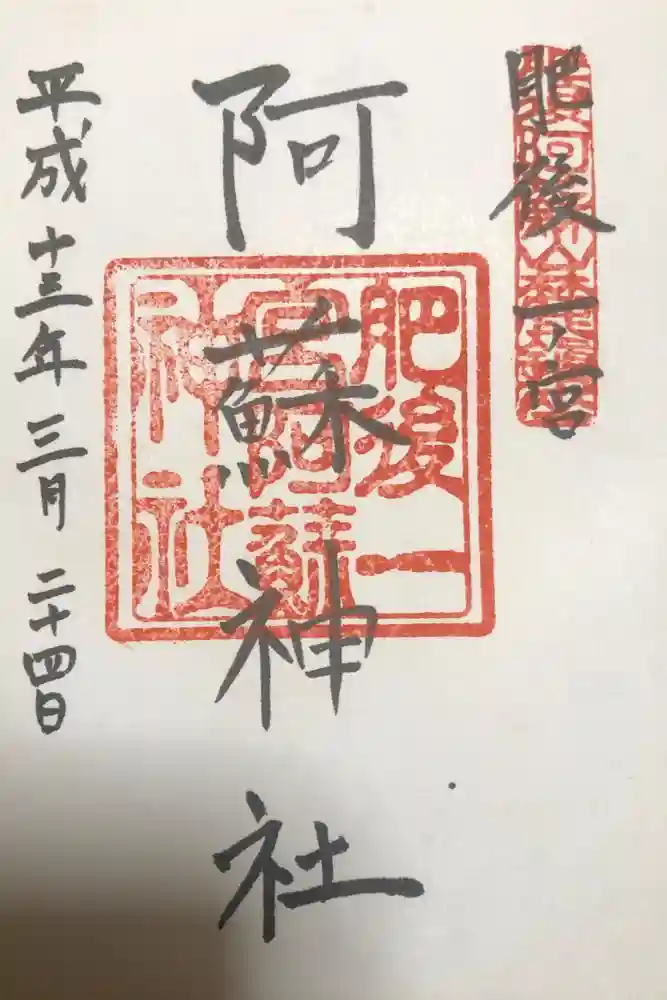 肥後一ノ宮
阿蘇神社
肥後一
宮阿蘇
神社
平成十三年三月二十四日